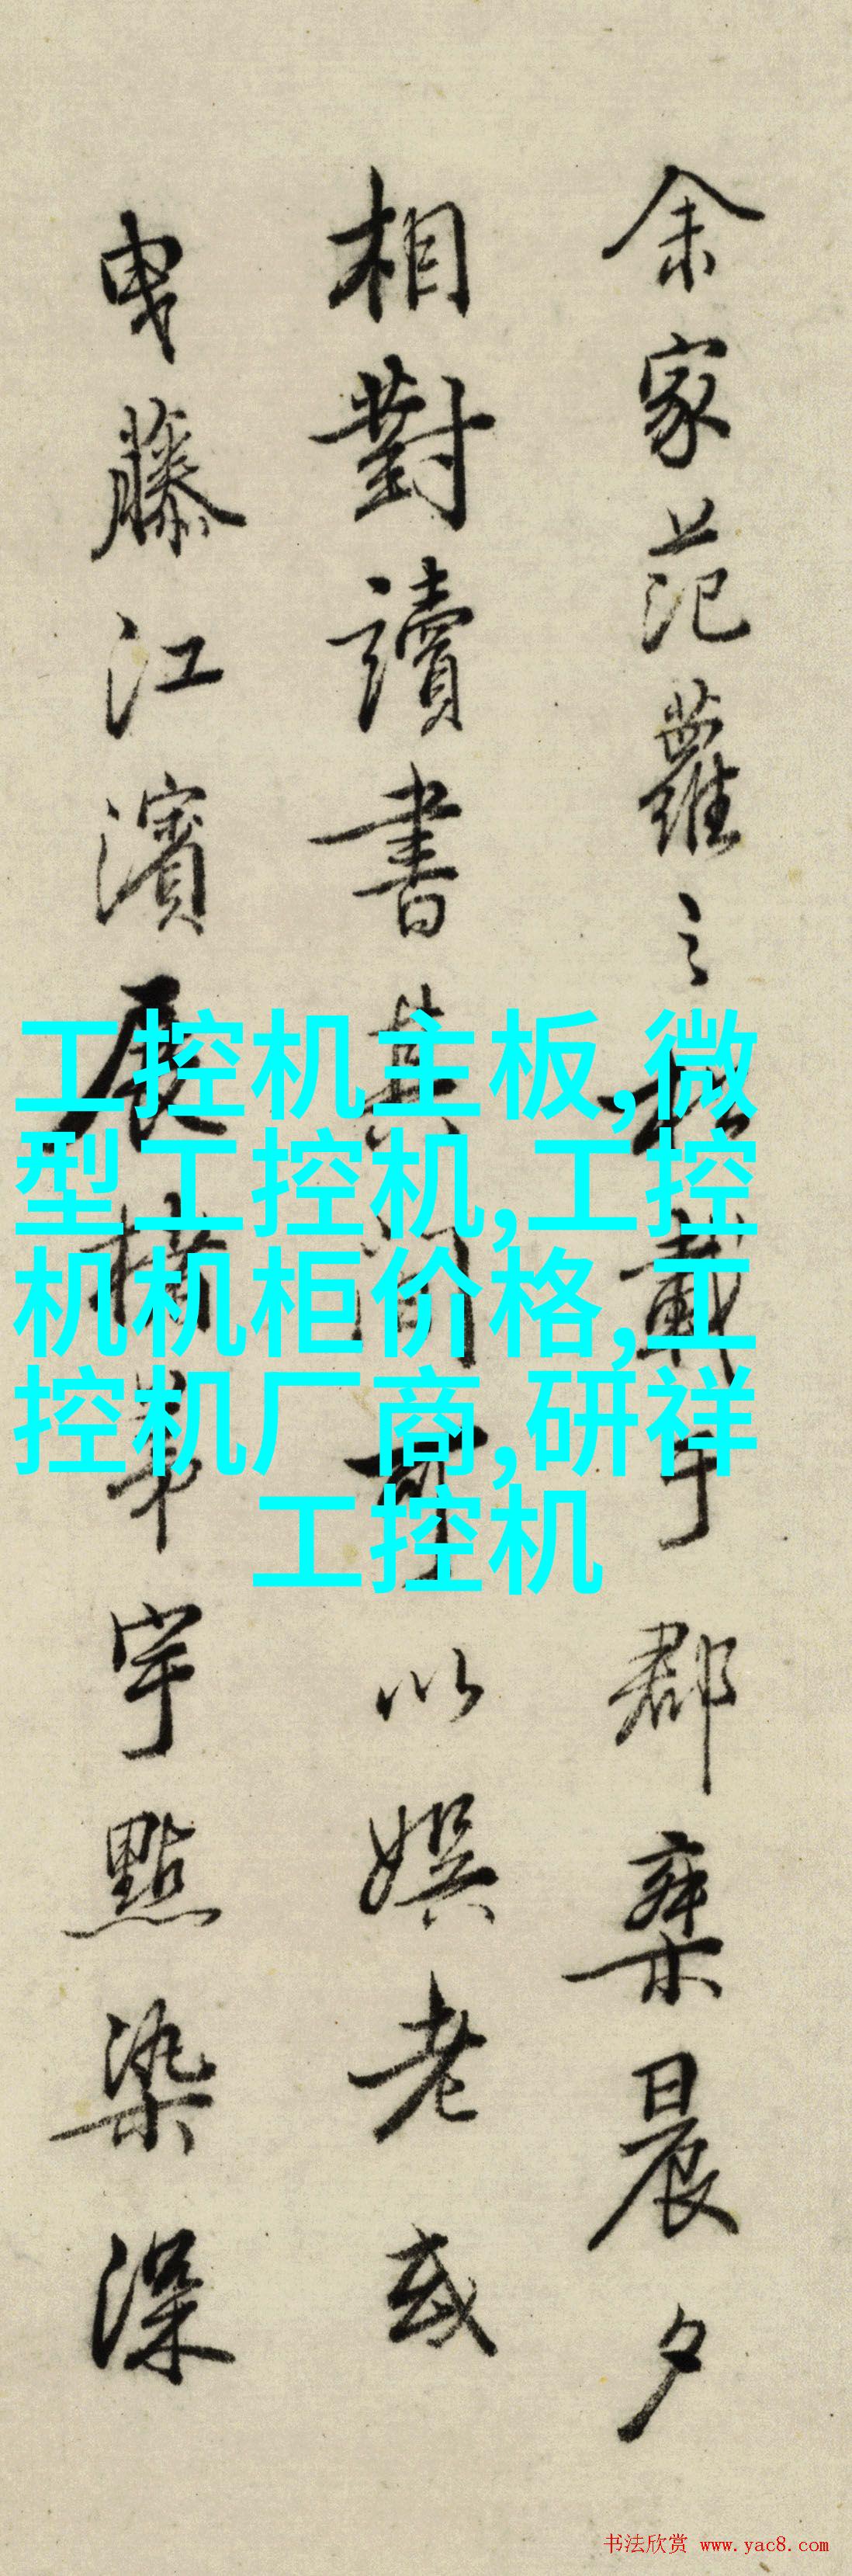 余家范蘿之松戴于郡齋晨夕
相對讀書其間可以娱老或
曳藤江濱展橫革宇點染深
工控机主板,微
型工控机,工控
机机柜价格,工
控机厂商,研祥
工控机
书法欣赏 www.yac8.com